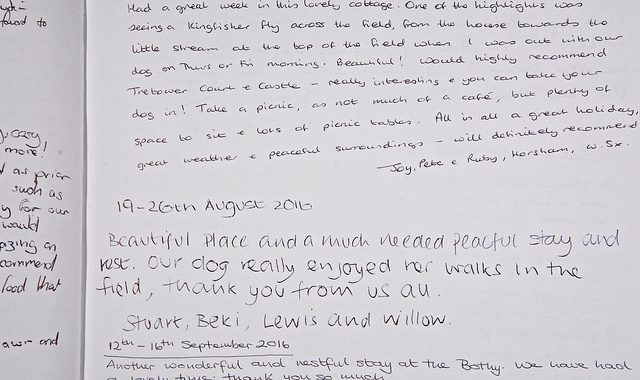 Had a great week in this lovely cottage. One of the highlights was
found to
seeing a Kingfisher fly across the field, from the house towards the
little stream at the top of the field when I was out with our
dog on Thurs or Fri morning. Beautiful! Would highly recommend
Tretower Court & Castle - really interesting & you can take your
dog in! Take a picnic, as not much of a café, but plenty of
space to sit & lots of picnic tables. All in all a great holiday,
great weather & peaceful surroundings - will definitely recommend
Joy, Pete & Ruby, Horsham, W. Sx.
cosy
more!
as prior
such as
y for our
would
on
commend
food that
and
19-26th August 2016
Beautiful place and a much needed peacful stay and
rest. Our dog really enjoyed her walks in the
field, thank you from us all.
Stuart, Beki, Lewis and Willow.
12th - 16th September 2016
Another wonderful and restful stay at the Bothy. We have had
a lovely time; thank you so much